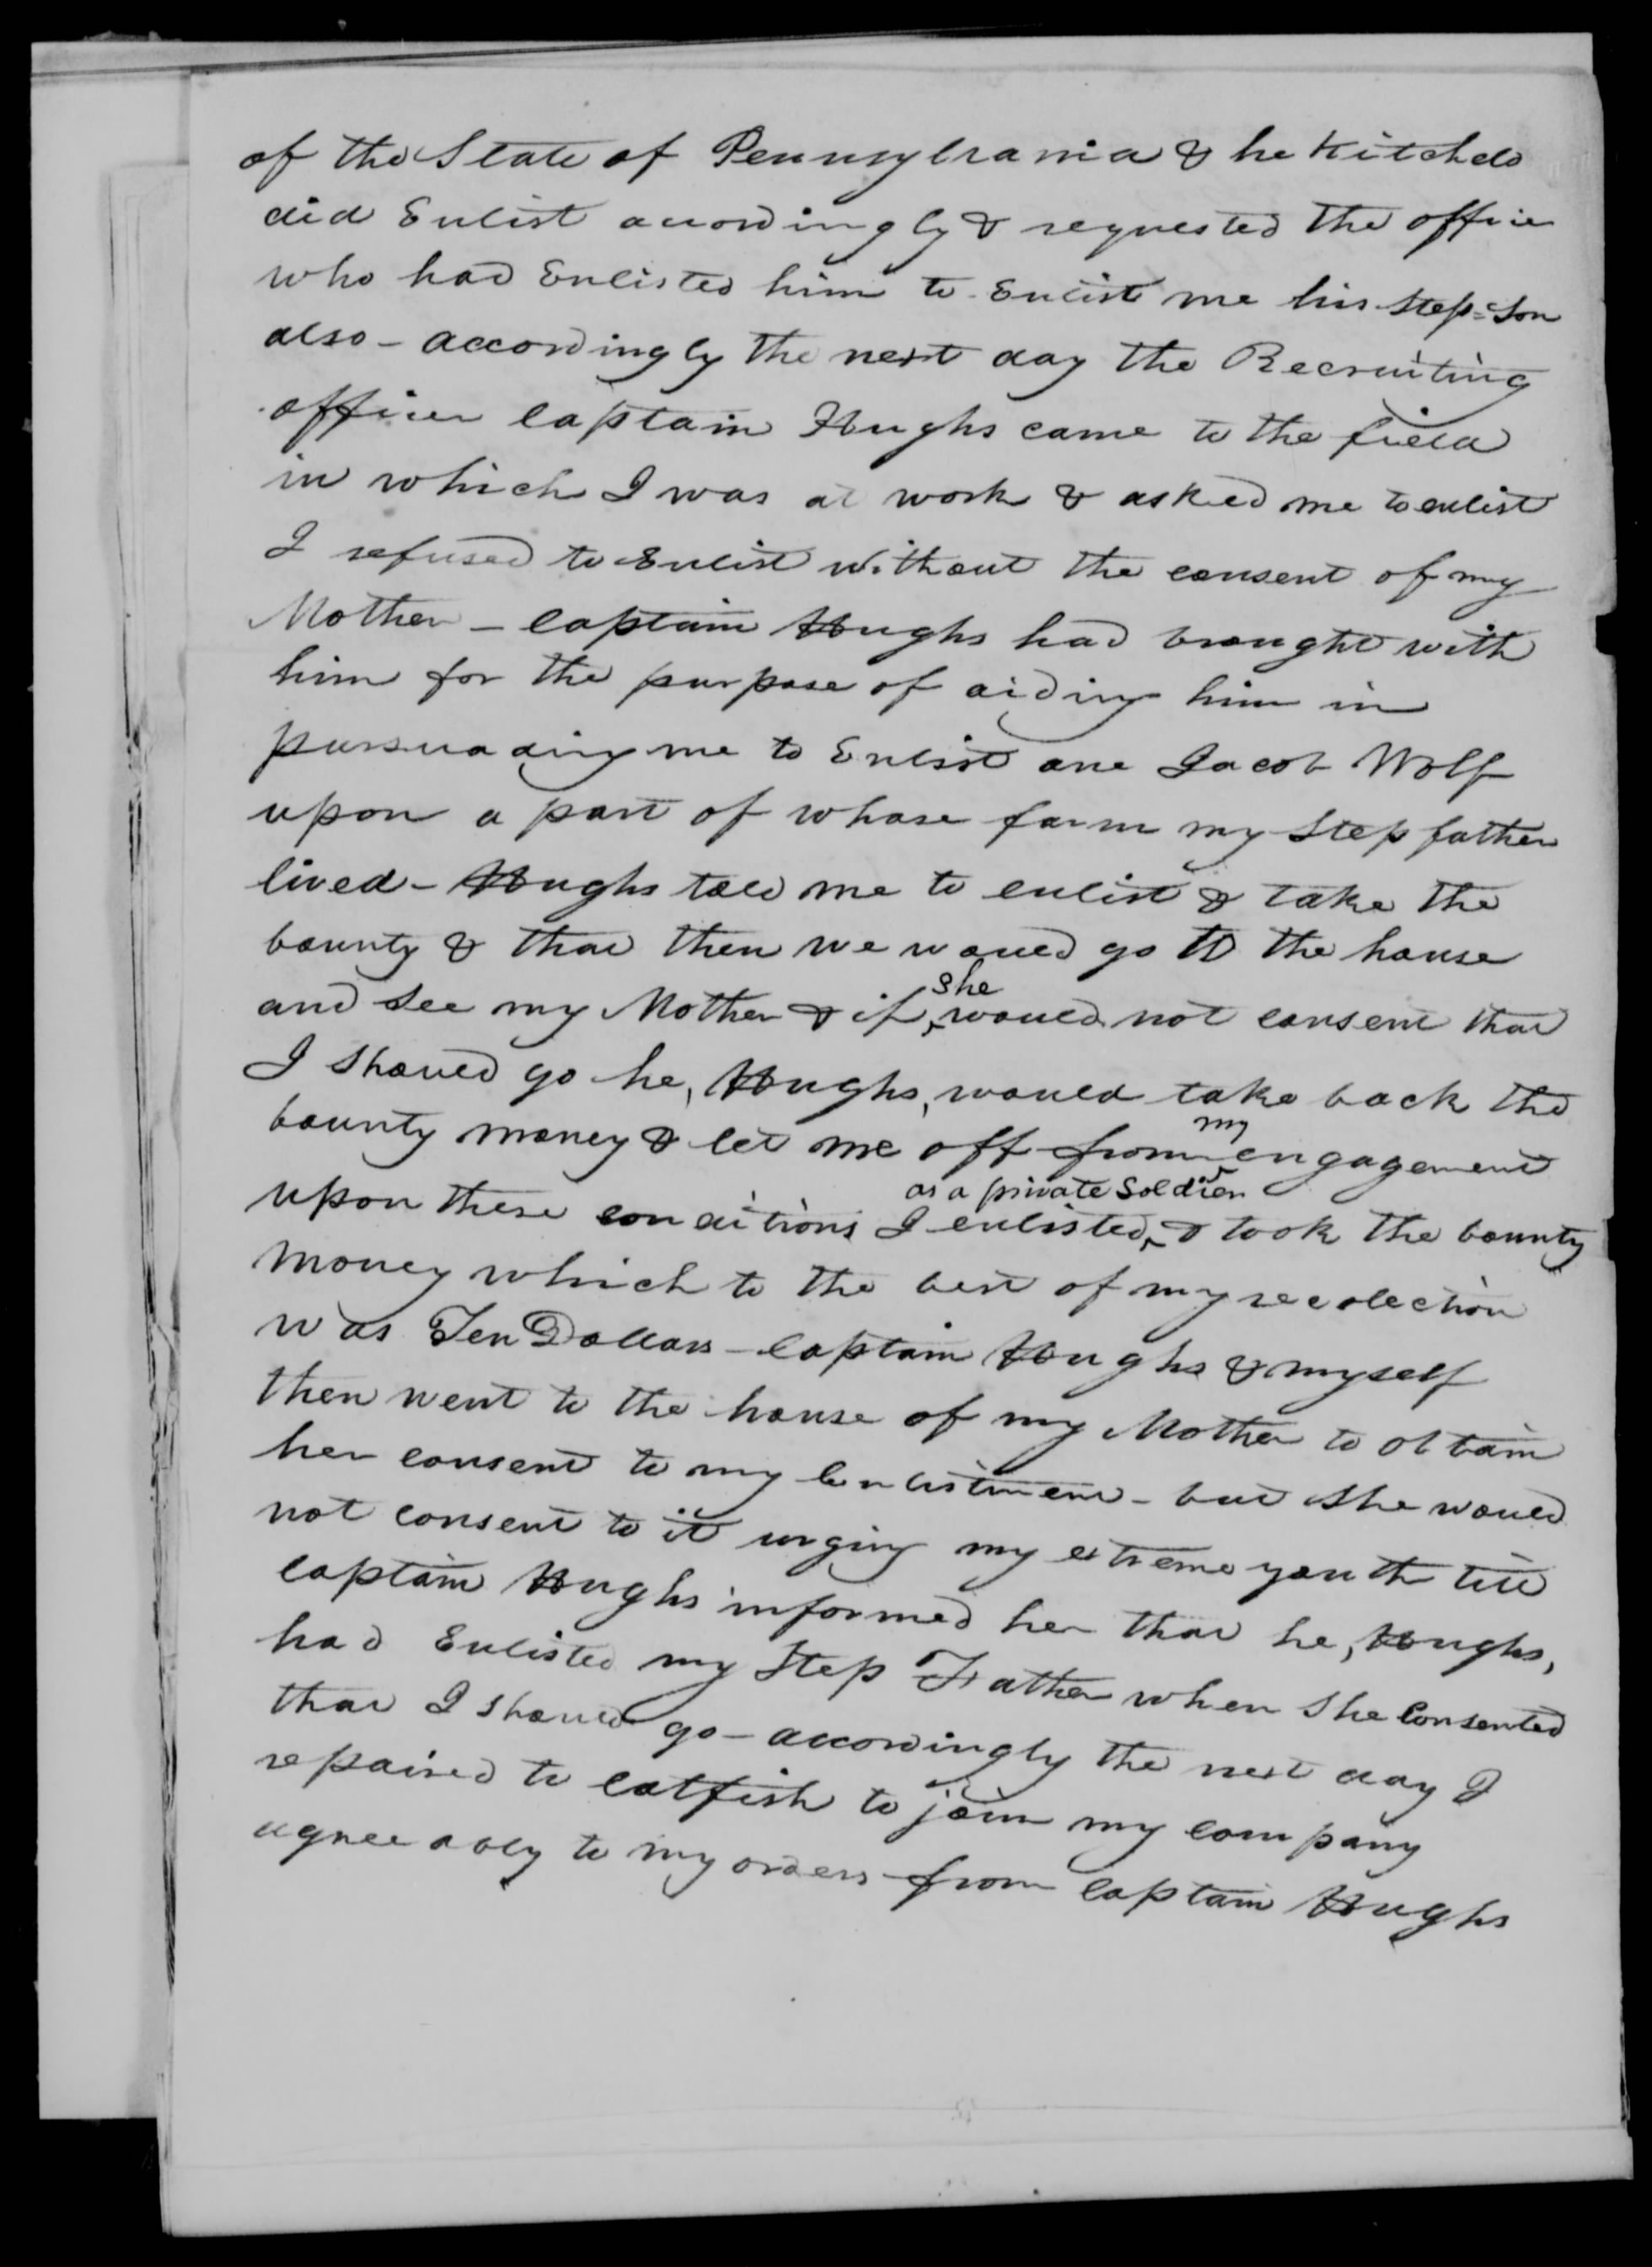 of the State of Pennsylvania & he Kitchds
did Enlist acordingly & requested the officer
who had Enlisted him to Enlist me his Step=Son
also - accordingly the next day the Recruiting
officer Captain Hughs came to the field
in which I was at work & asked me to enlist
I refused to Enlist without the consent of my
Mother - Captain Hughs had brought with
him for the purpose of aiding him in
pursuading me to Enlist one Jacob Wolf
upon a part of whose farm my Step father
lived - Hughs told me to enlist & take the
bounty & that then we would go to the house
and see my Mother & if she would not consent that
I should go he, Hughs, would take back the
bounty money & let me off from my engagement
upon these conditions I enlisted as a private Soldier & took the bounty
money which to the best of my recolection
was Ten Dollars - Captain Hughs & myself
then went to the house of my Mother to obtain
her consent to my Enlistment - but she would
not consent to it urging my extreme youth till
Captain Hughs informed her that he, Hughs,
had Enlisted my Step Father when she Consented
that I should go - accordingly the next day I
repaired to Catfish to join my company
agreeably to my orders from Captain Hughs